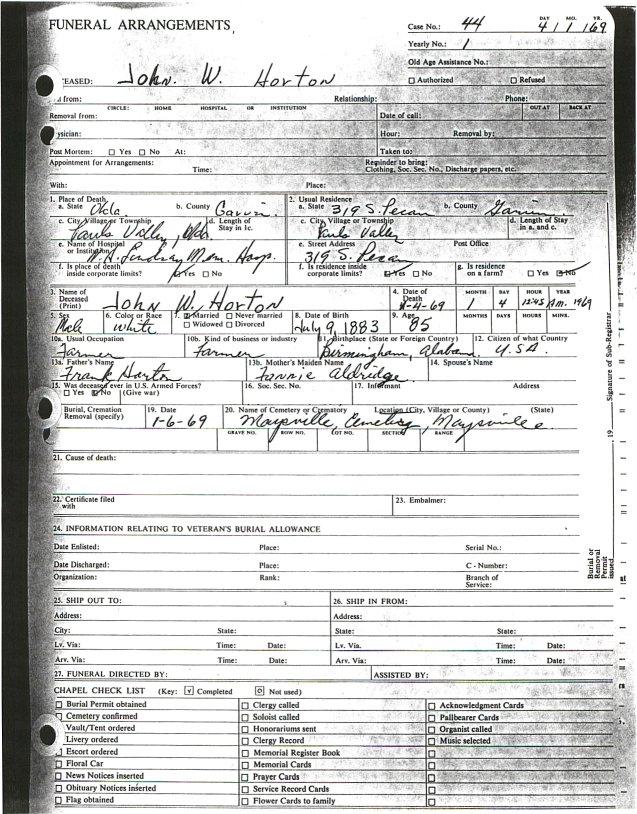 FUNERAL ARRANGEMENTS,
Case No.: 44 DAY MO. YR. 4 / 1 / 69
Yearly No.: 1
Old Age Assistance No.:
EASED: John. W. Horton □ Authorized □ Refused
from: Relationship: Phone:
CIRCLE: HOME HOSPITAL OR INSTITUTION OUT AT BACK AT
Removal from: Date of call:
ysician: Hour: Removal by:
Post Mortem: □ Yes □ No At: Taken to:
Appointment for Arrangements: Time: Reminder to bring: Clothing, Soc. Sec. No., Discharge papers, etc.
With: Place:
1. Place of Death 2. Usual Residence
a. State Okla b. County Garvin a. State 319 S. Pecan b. County Garvin
c. City Village or Township d. Length of Stay in 1c. c. City, Village or Township d. Length of Stay in a. and c.
Pauls Valley, Okla Pauls Valley
e. Name of Hospital or Institution e. Street Address Post Office
Lindsay Mem. Hosp. 319 S. Pecan
f. Is place of death inside corporate limits? ☑ Yes □ No f. Is residence inside corporate limits? ☑ Yes □ No g. Is residence on a farm? □ Yes ☑ No
3. Name of Deceased (Print) John W. Horton 4. Date of Death 1-4-69 MONTH DAY HOUR YEAR 1 4 12:45 Am. 1969
5. Sex 6. Color or Race 7. ☑ Married □ Never married □ Widowed □ Divorced 8. Date of Birth 9. Age MONTHS DAYS HOURS MINS.
Male White July 9, 1883 85
10a. Usual Occupation 10b. Kind of business or industry 11. Birthplace (State or Foreign Country) 12. Citizen of what Country
Farmer Farmer Birmingham, Alabama USA
13a. Father's Name 13b. Mother's Maiden Name 14. Spouse's Name
Frank Horton Fannie Aldridge
15. Was deceased ever in U.S. Armed Forces? 16. Soc. Sec. No. 17. Informant Address
□ Yes ☑ No (Give war)
Burial, Cremation Removal (specify) 19. Date 20. Name of Cemetery or Crematory Location (City, Village or County) (State)
1-6-69 Maysville, Cemetery, Maysville
GRAVE NO. ROW NO. LOT NO. SECTION RANGE
21. Cause of death:
22. Certificate filed with 23. Embalmer:
24. INFORMATION RELATING TO VETERAN'S BURIAL ALLOWANCE
Date Enlisted: Place: Serial No.:
Date Discharged: Place: C - Number:
Organization: Rank: Branch of Service:
25. SHIP OUT TO: 26. SHIP IN FROM:
Address: Address:
City: State: State: State:
Lv. Via: Time: Date: Lv. Via. Time: Date:
Arv. Via: Time: Date: Arv. Via: Time: Date:
27. FUNERAL DIRECTED BY: ASSISTED BY:
CHAPEL CHECK LIST (Key: √ Completed O Not used)
□ Burial Permit obtained □ Clergy called □ Acknowledgment Cards
□ Cemetery confirmed □ Soloist called □ Pallbearer Cards
Vault/Tent ordered □ Honorariums sent □ Organist called
Livery ordered □ Clergy Record □ Music selected
Escort ordered □ Memorial Register Book □
□ Floral Car □ Memorial Cards □
□ News Notices inserted □ Prayer Cards □
□ Obituary Notices inserted □ Service Record Cards □
□ Flag obtained □ Flower Cards to family □
Signature of Sub-Registrar
19
Burial or Removal Permit issued